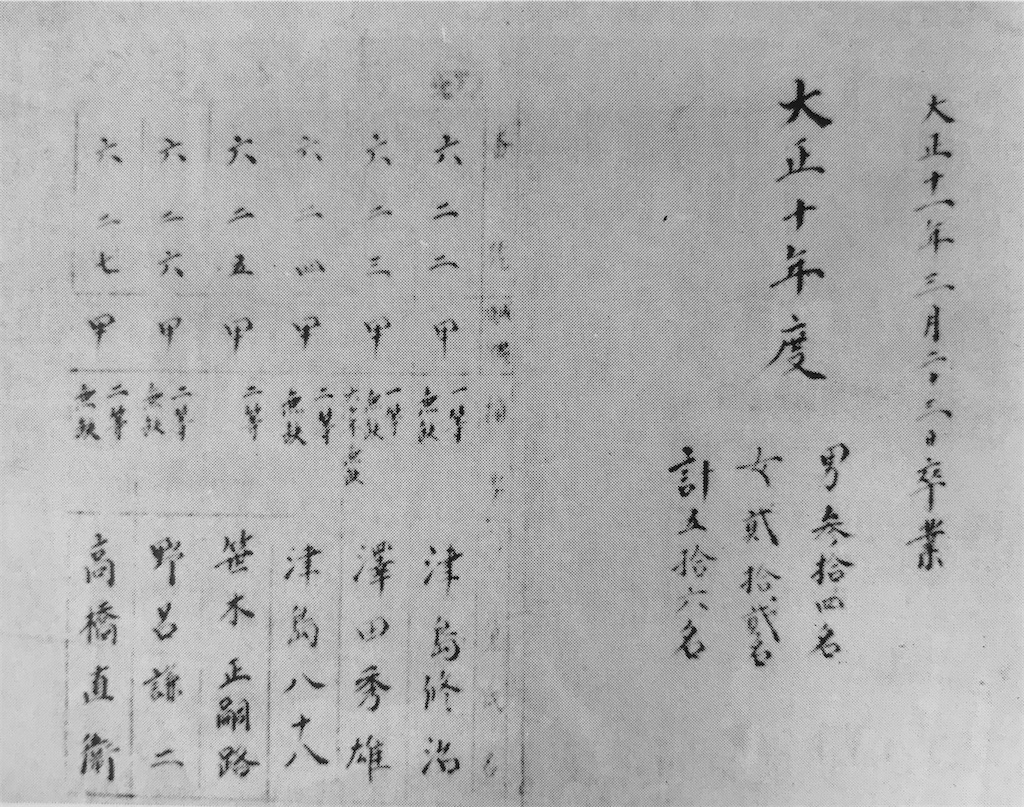 大正十一年三月二十二日卒業
大正十年度
男参拾四名
女貳拾貳名
計五拾六名
六二二 甲 一等 無欠 津島修治
六二三 甲 一等 澤田秀雄
六二四 甲 二等 無欠 津島八十八
六二五 甲 二等 笹木正嗣路
六二六 甲 二等 無欠 野呂謙二
六二七 甲 二等 無欠 高橋直衛